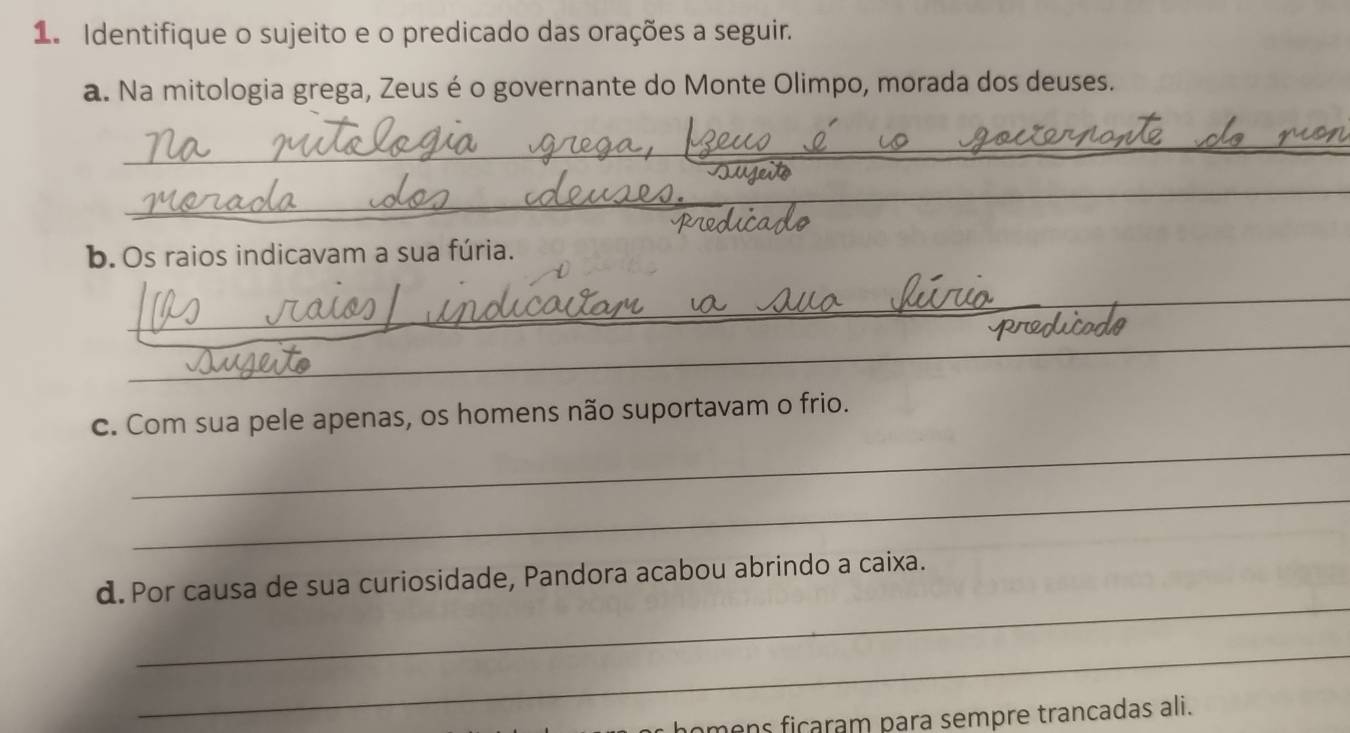 1. Identifique o sujeito e o predicado das orações a seguir.
a. Na mitologia grega, Zeus é o governante do Monte Olimpo, morada dos deuses.
na mitologia grega, zeus é o governante do mon
sujeito
morada dos deuses.
predicado
b. Os raios indicavam a sua fúria.
Os raios indicavam a sua fúria
predicado
sujeito
c. Com sua pele apenas, os homens não suportavam o frio.
d. Por causa de sua curiosidade, Pandora acabou abrindo a caixa.
homens ficaram para sempre trancadas ali.